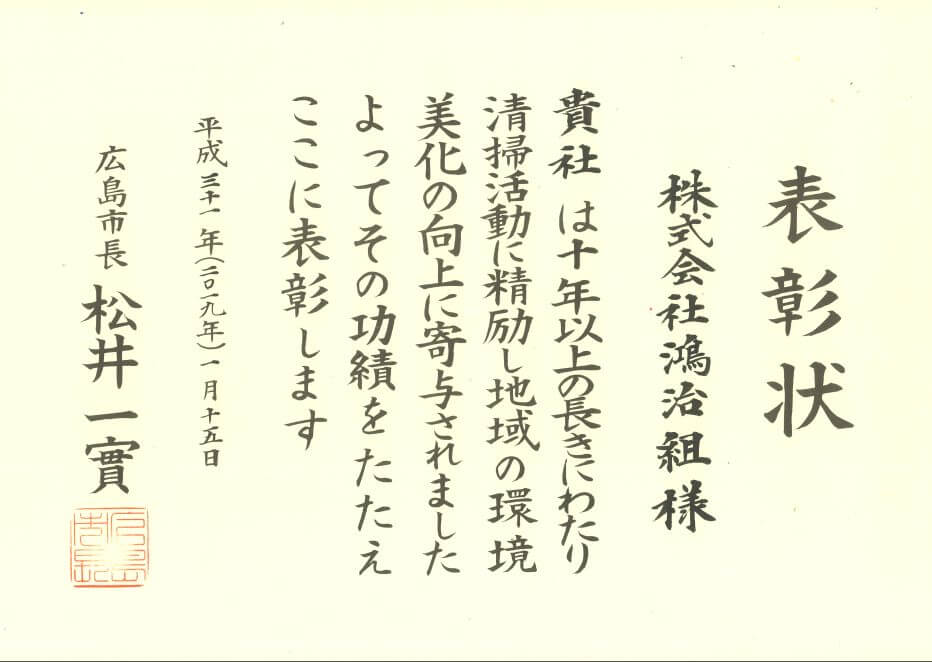 表彰状
株式会社鴻治組様
貴社は十年以上の長きにわたり
清掃活動に精励し地域の環境
美化の向上に寄与されました
よってその功績をたたえ
ここに表彰します
平成三十一年(二〇一九年)一月十五日
広島市長 松井一實
広島市長